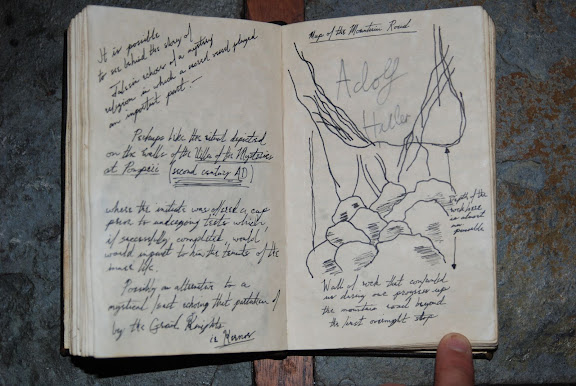 It is possible
to see behind the story of
Juleson echoes of a mystery
religion in which a sacred vessel played
an important part:—
Perhaps like the ritual depicted
on the walls of the Villa of the Mysteries
at Pompeii (second century AD)
where the initiate was offered a cup
prior to undergoing tests which
if successfully completed, would
would impart to him the fruits of the
inner life.
Possibly an alternative to a
mystical feast echoing that partaken of
by the Grail Knights
Map of the Mountain Road
Adolf
Haller
depth of the
is almost
Wall of rock that confronted
us during our progress up
the mountain road beyond
the last overnight stop